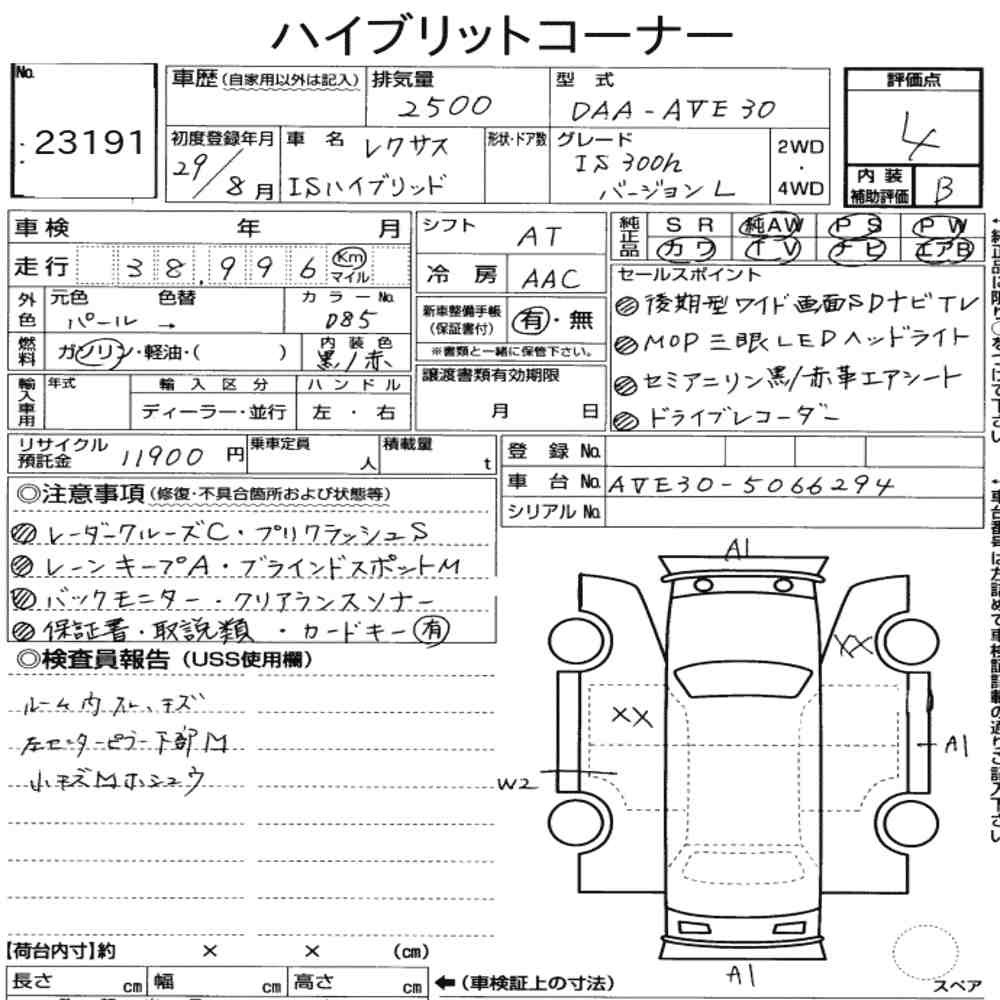 ハイブリットコーナー
No. 23191
車歴(自家用以外は記入) 排気量 2500 型式 DAA-AVE30
初度登録年月 29/8月 車名 レクサス ISハイブリッド 形状・ドア数 グレード IS300h バージョンL 2WD・4WD
評価点 4
内装補助評価 B
車検 年 月
走行 38,996 Km マイル
外色 元色 パール → 色替 カラーNo. 085
燃料 ガソリン・軽油・( ) 内装色 黒/赤
輸入車用 年式 輸入区分 ディーラー・並行 ハンドル 左・右
シフト AT
冷房 AAC
新車整備手帳(保証書付) 有・無
※書類と一緒に保管下さい。
譲渡書類有効期限 月 日
純正品 SR 純AW PS PW
カワ TV ナビ エアB
セールスポイント
後期型ワイド画面SDナビTV
MOP三眼LEDヘッドライト
セミアニリン黒/赤革エアシート
ドライブレコーダー
リサイクル預託金 11900円 乗車定員 人 積載量 t
登録No.
車台No. AVE30-5066294
シリアルNo.
◎注意事項(修復・不具合箇所および状態等)
レーダークルーズC・プリクラッシュS
レーンキープA・ブラインドスポットM
バックモニター・クリアランスソナー
保証書・取説類・カードキー有
◎検査員報告(USS使用欄)
ルーム内スレ、キズ
左センターピラー下部M
小キズMホシュウ
A1
XX
XX
A1
W2
A1
スペア
【荷台内寸】約 × × (cm)
長さ cm 幅 cm 高さ cm ←(車検証上の寸法)